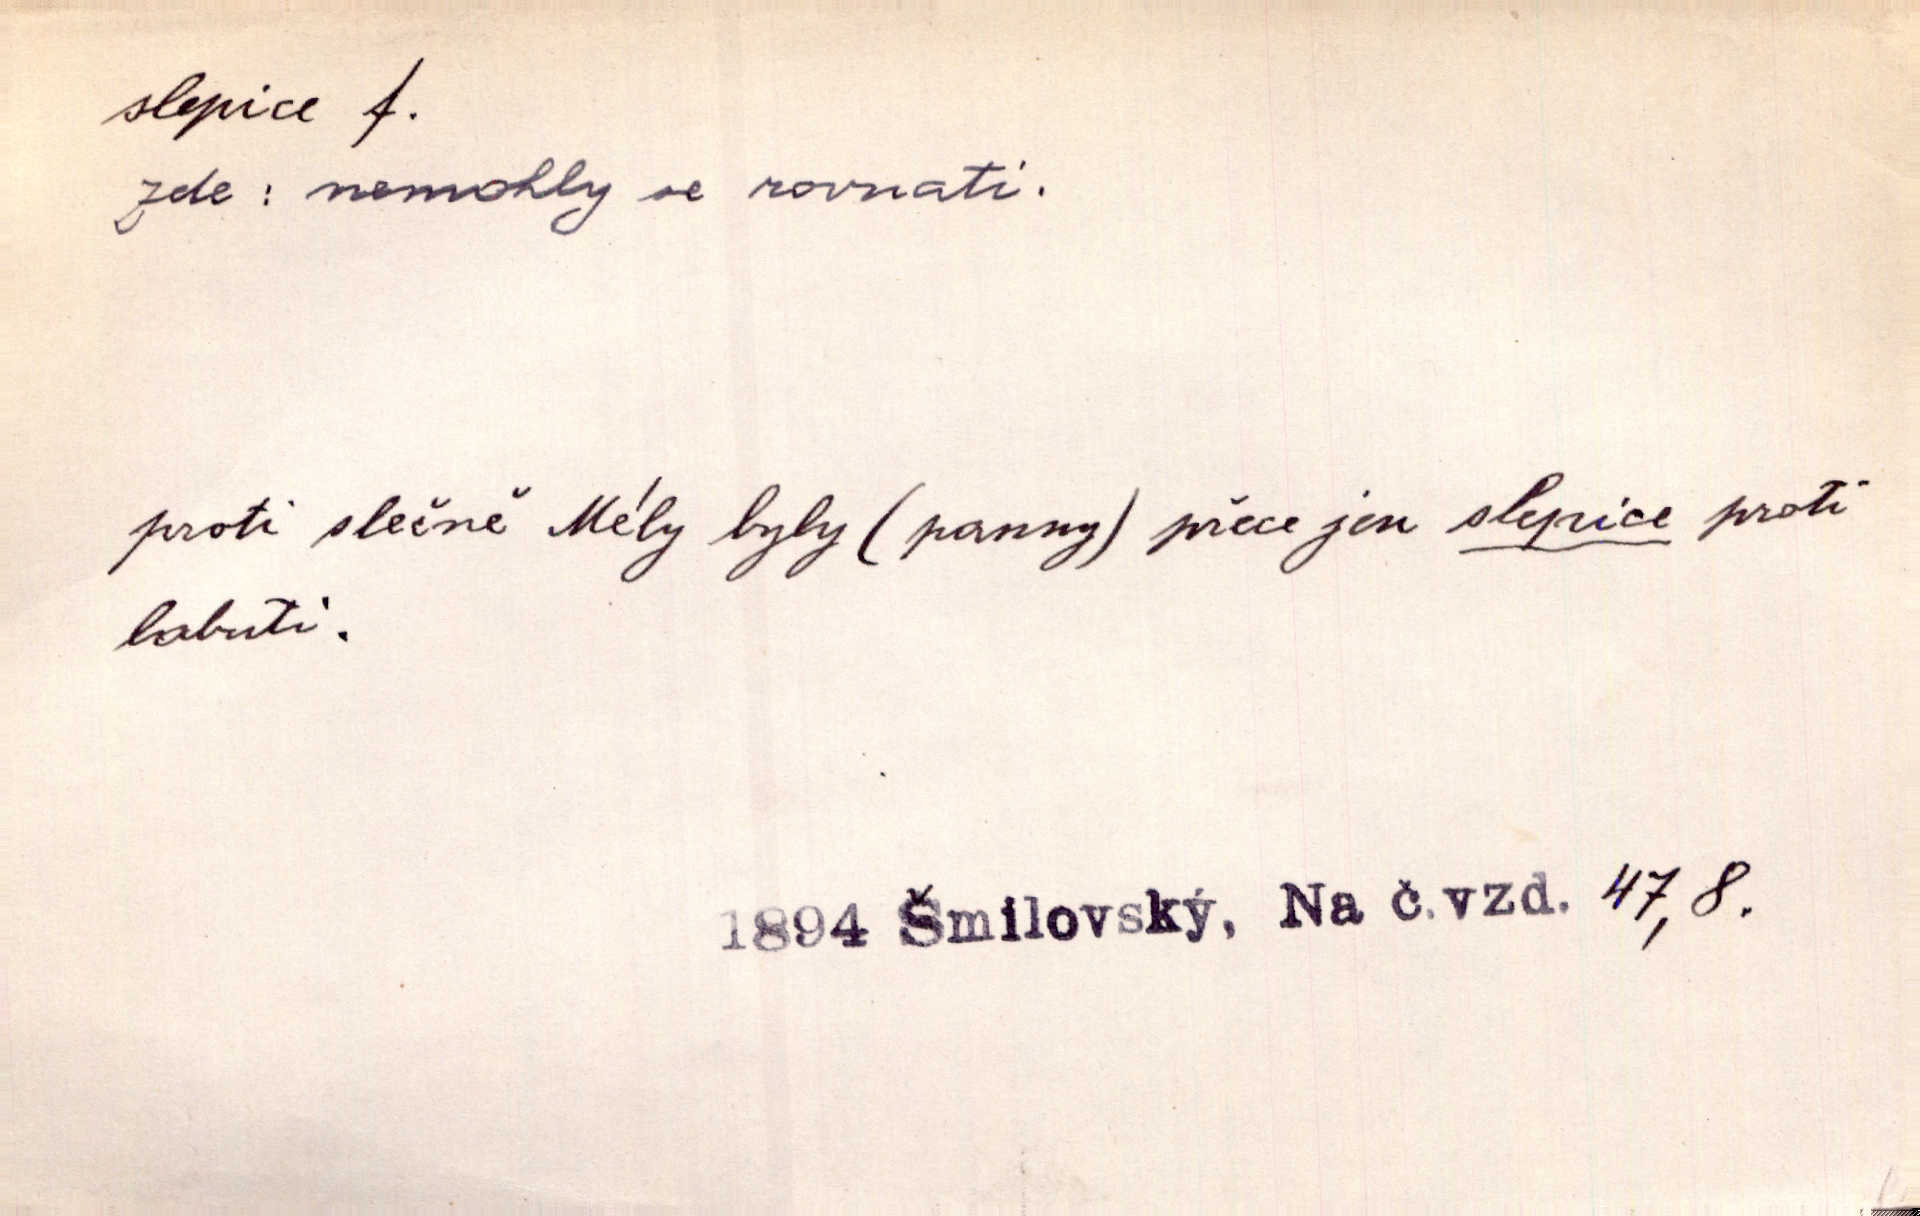 slepice f.
zde: nemohly se rovnati.
proti slečně Mély byly (panny) přece jen slepice proti
labuti.
1894 Šmilovský, Na č.vzd. 47,8.